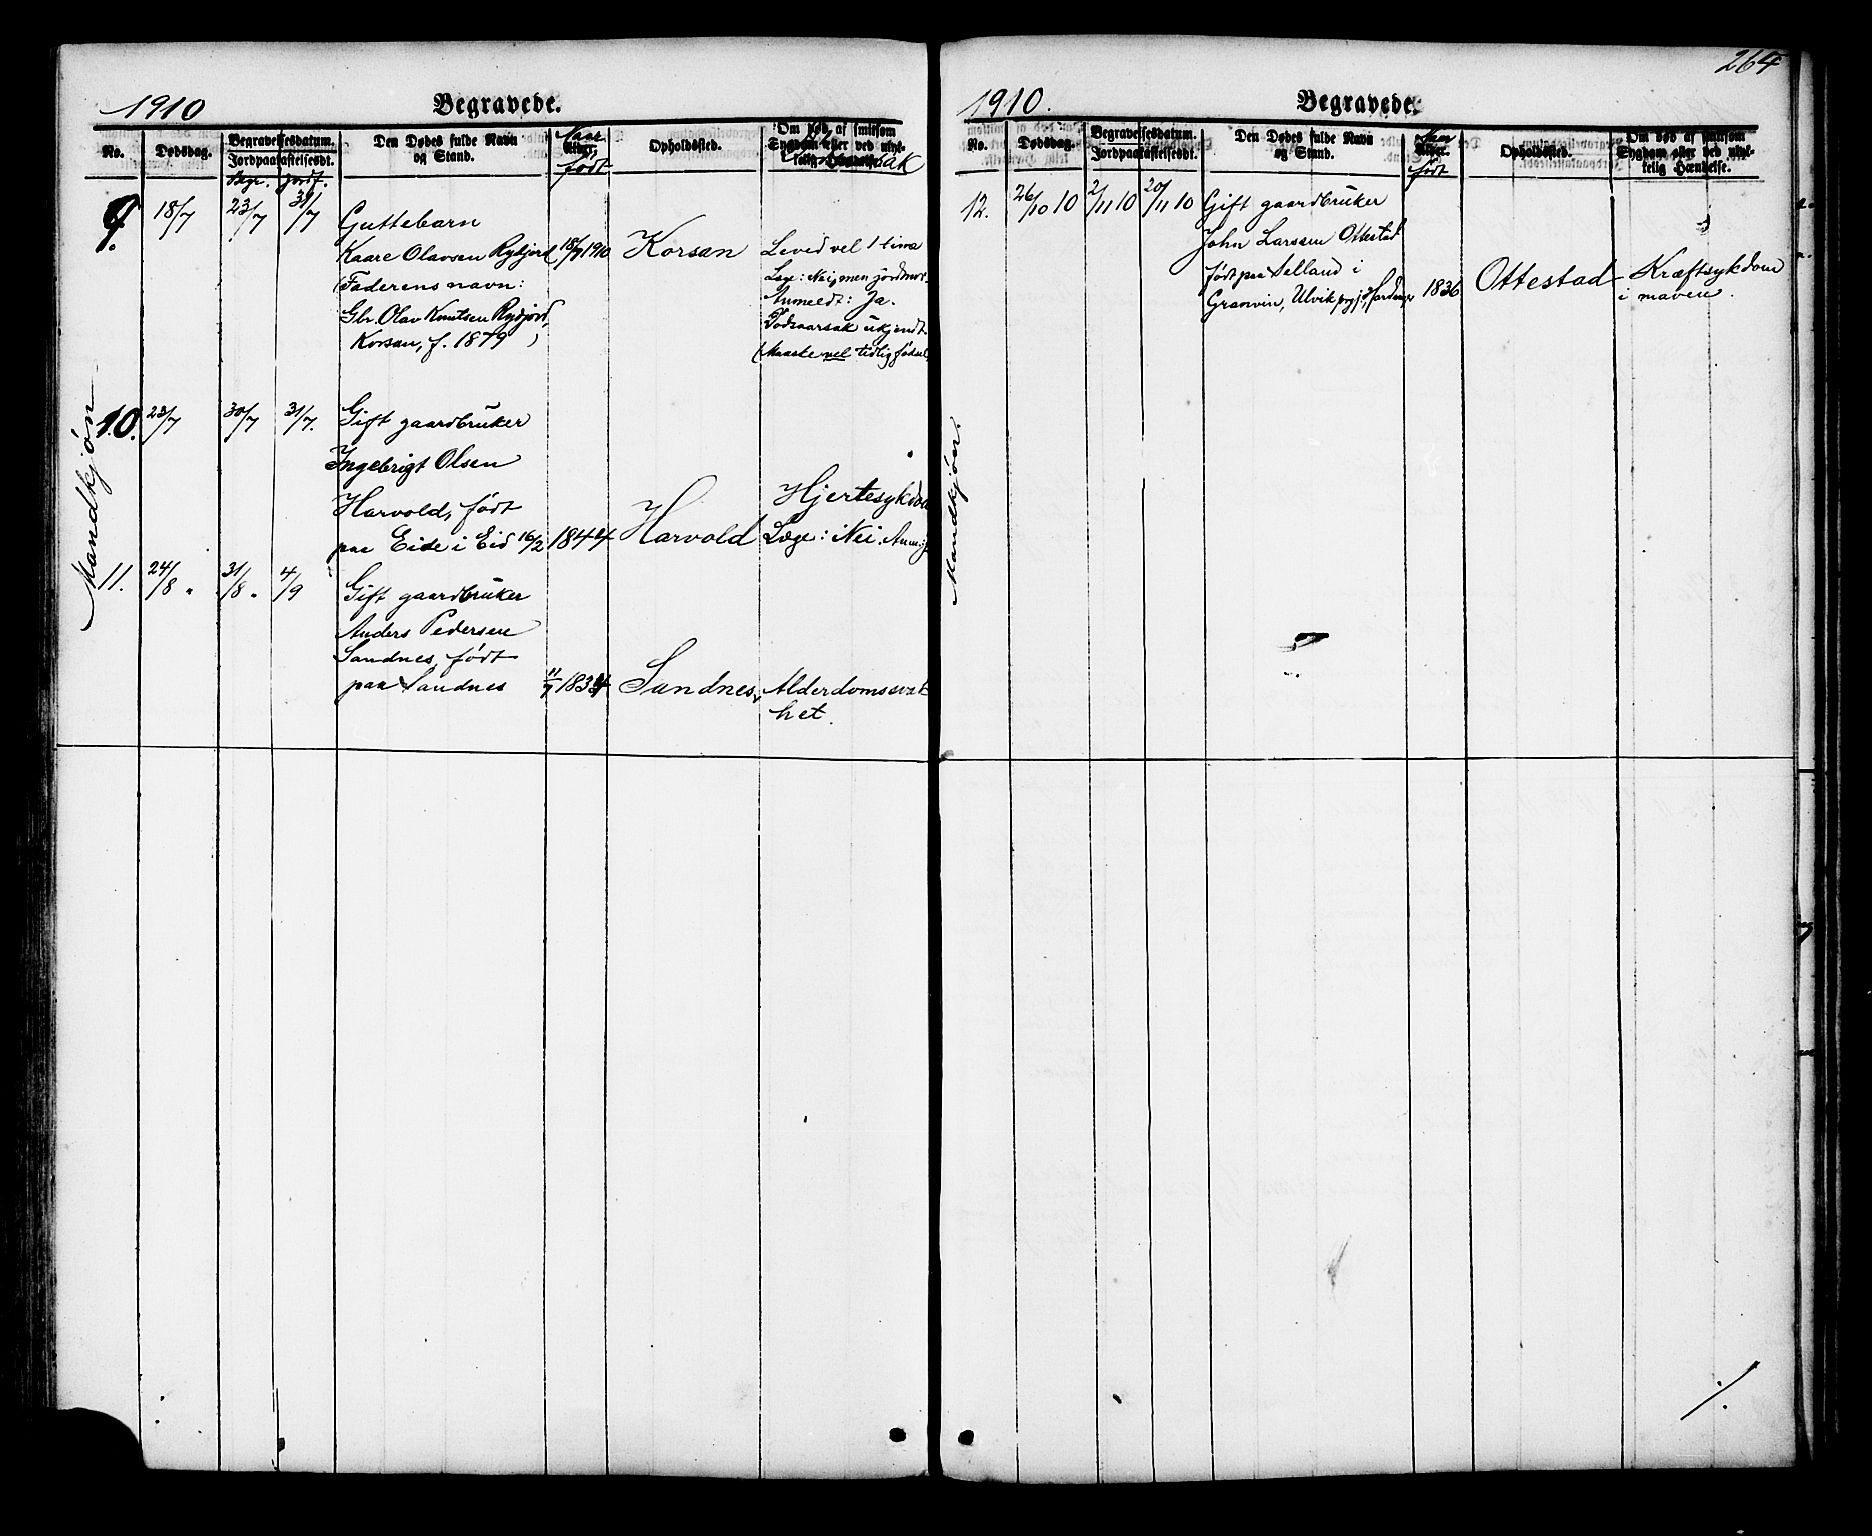 1910
Begravede.
No.
Dødsdag.
Begravelsesdatum.
Jordpaakastelsesdt.
Begr. Jordf.
Den Dødes fulde Navn
og Stand.
Naar
Alder,
født
Opholdssted.
Om død af smitsom
Sygdom eller ved ulyk-
kelig
Mandkjøn
9.
18/7
23/7
31/7
Guttebarn
Kaare Olavsen Rydjord
(Faderens navn:
Gbr. Olav Knutsen Rydjord,
Korsan, f. 1879)
18/7 1910
Korsan
Leved vel 1 time
Læge: Nei, men jordmor.
Anmeldt: Ja.
Dødsaarsak ukjendt
(Maaske vel tidlig fødsel
10.
23/7
30/7
31/7.
Gift gaardbruker
Ingebrigt Olsen
Harvold, født
paa Eide i Eid 16/2
1844
Harvold
Hjertesykdom
Læge: Nei.
11.
24/8.
31/8.
4/9
Gift gaardbruker
Anders Pedersen
Sandnes, født
paa Sandnes
11/7 1834
Sandnes,
Alderdomssvak
het.
264
1910.
Begravede.
No.
Dødsdag.
Begravelsesdatum.
Jordpaakastelsesdt.
Den Dødes fulde Navn
og Stand.
Naar
Alder.
født
Opholdssted.
Om død af smitsom
Sygdom eller ved ulyk-
kelig Hændelse.
Mandkjøn.
12.
26/10 10
2/11 10
20/11 10
Gift gaardbruker
John Larssen Ottestad
født paa Selland i
Granvin, Ulvik prgj.
1836
Ottestad
Kræftsykdom
i maven.